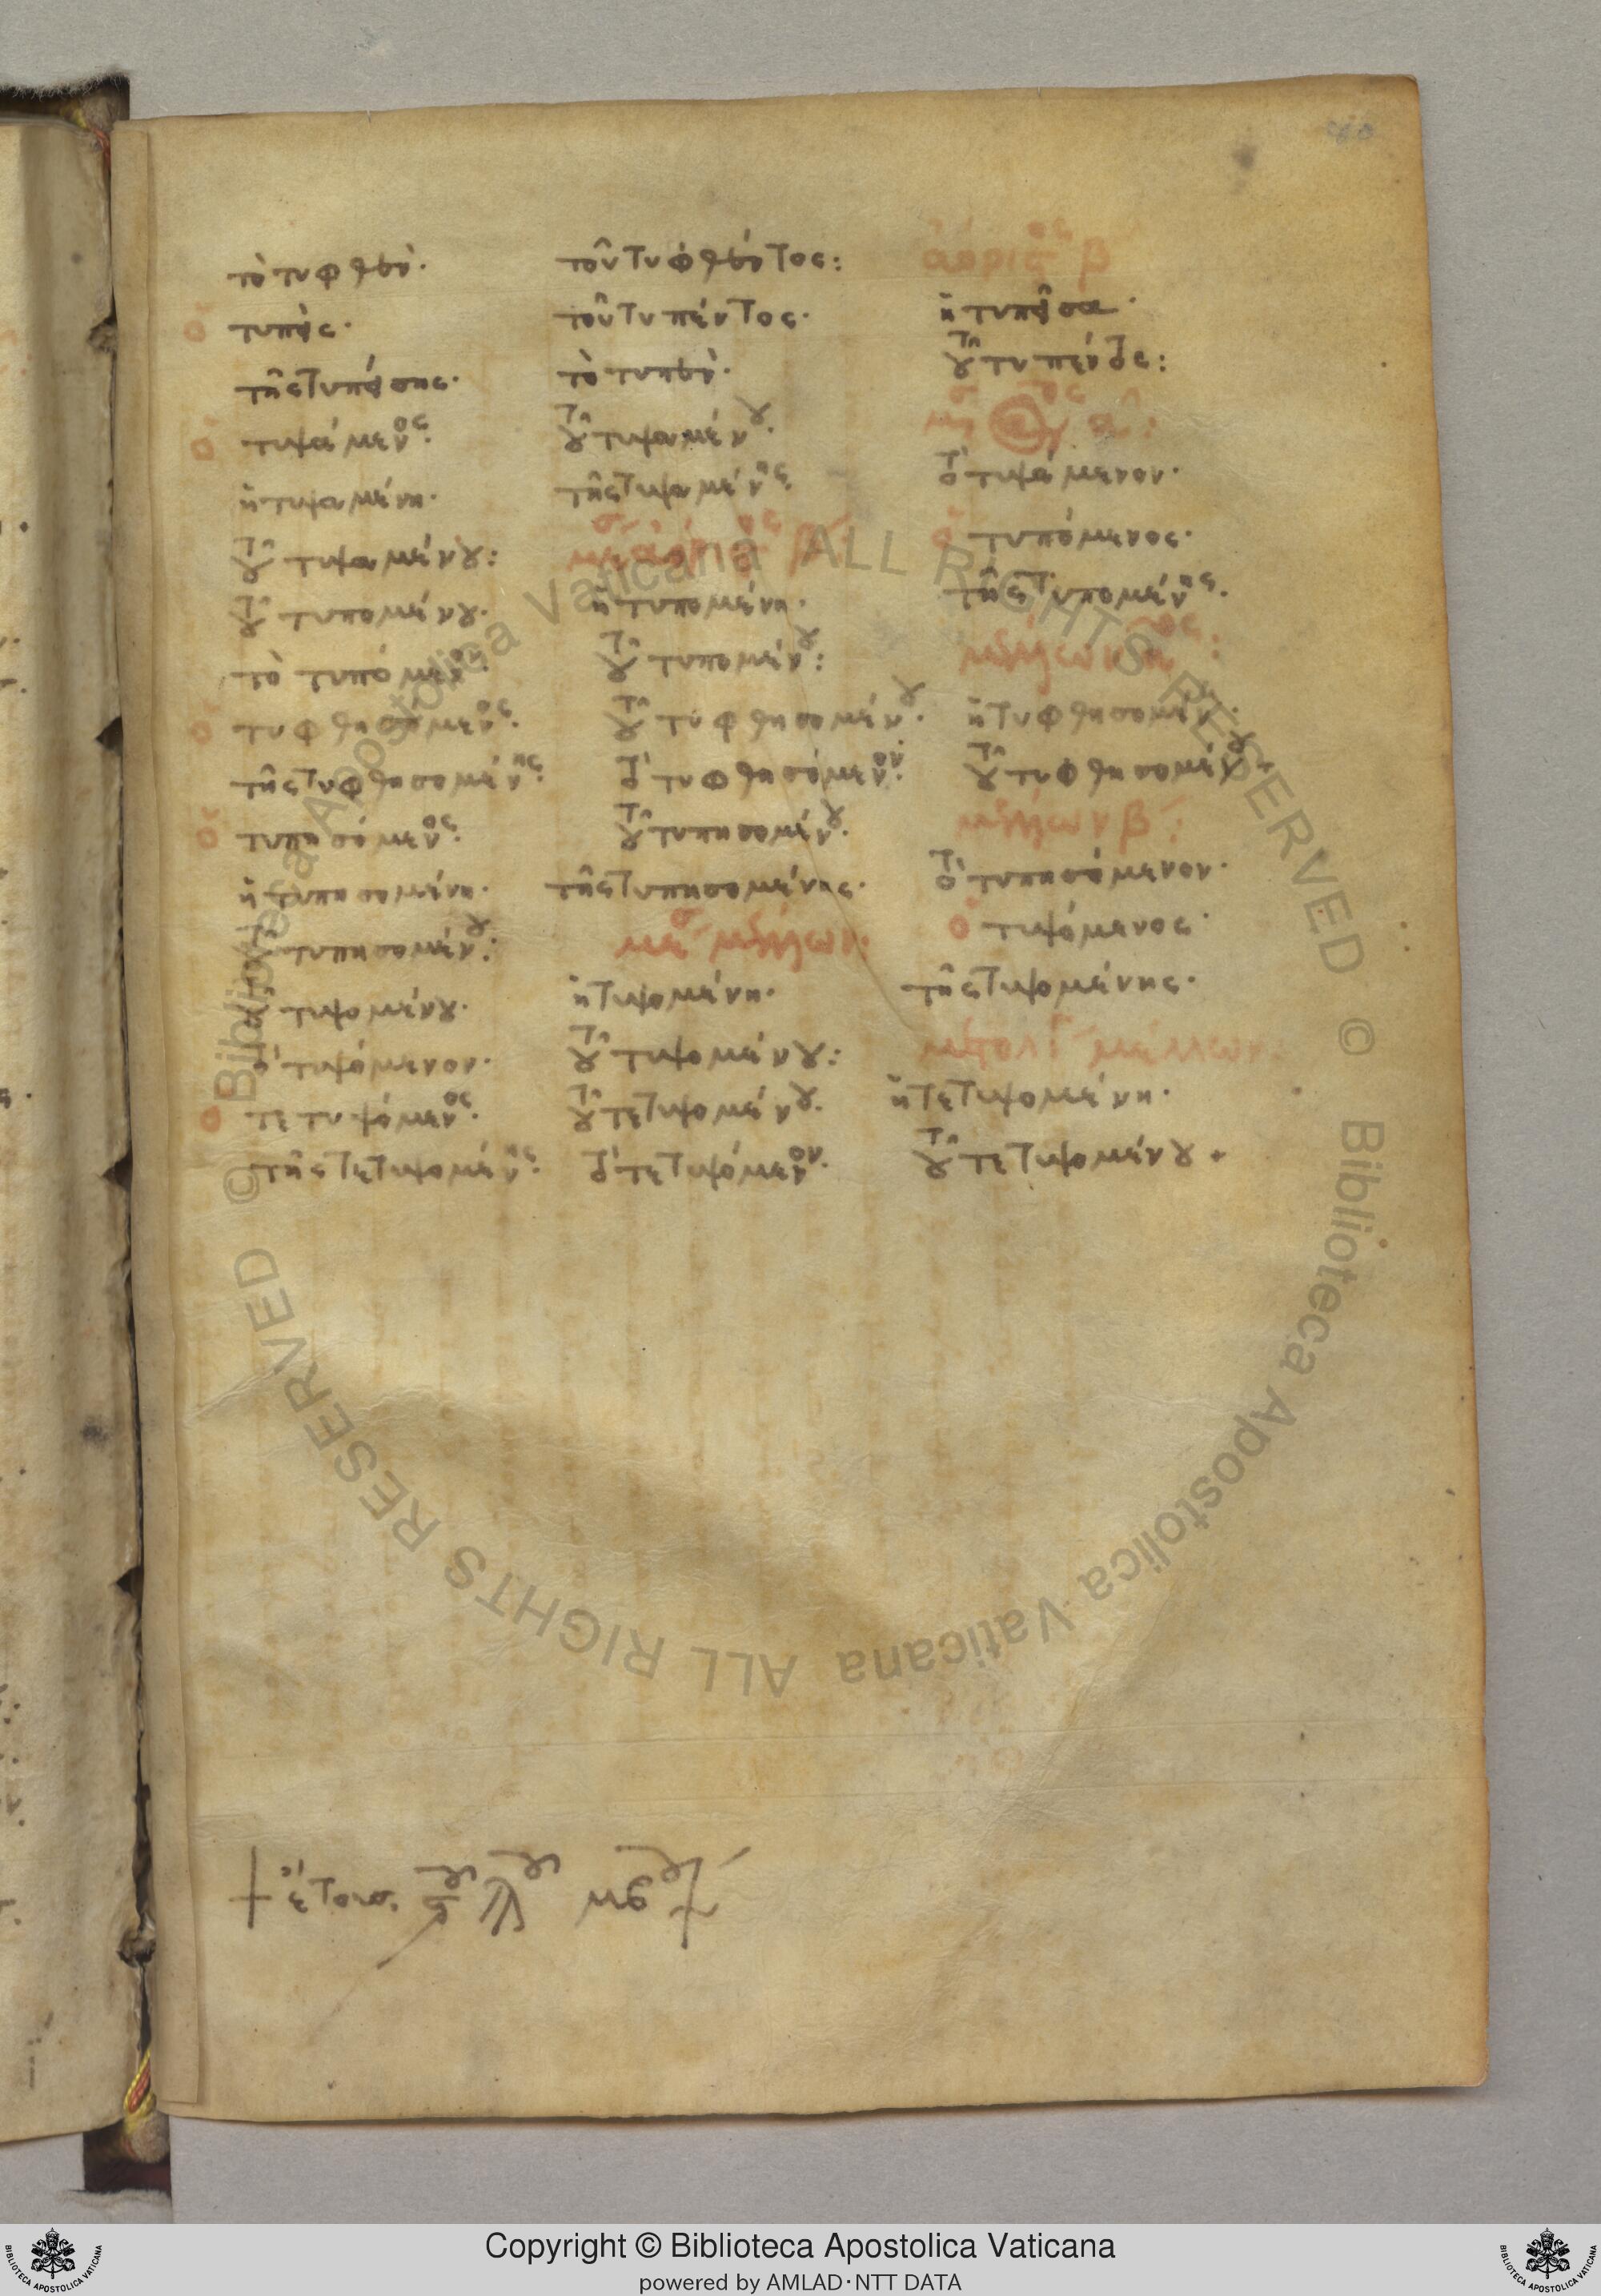 τὸ τυφθὲν· τοῦ τυφθέντος: ἀόριστος β
ὁ τυπεὶς· τοῦ τυπέντος· ἡ τυπεῖσα·
τῆς τυπείσης· τὸ τυπὲν· τοῦ τυπέντος:
ὁ τυψάμενος· τοῦ τυψαμένου·
ἡ τυψαμένη· τῆς τυψαμένης· τὸ τυψάμενον·
τοῦ τυψαμένου: ὁ τυπόμενος·
τοῦ τυπομένου· ἡ τυπομένη· τῆς τυπομένης·
τὸ τυπόμενον· τοῦ τυπομένου:
ὁ τυφθησόμενος· τοῦ τυφθησομένου· ἡ τυφθησομένη·
τῆς τυφθησομένης· τὸ τυφθησόμενον· τοῦ τυφθησομένου·
ὁ τυπησόμενος· τοῦ τυπησομένου· μέλλων β:
ἡ τυπησομένη· τῆς τυπησομένης· τὸ τυπησόμενον·
τοῦ τυπησομένου: μέσ μέλλων· ὁ τυψόμενος·
τοῦ τυψομένου· ἡ τυψομένη· τῆς τυψομένης·
τὸ τυψόμενον· τοῦ τυψομένου: μέλλων
ὁ τετυψόμενος· τοῦ τετυψομένου· ἡ τετυψομένη·
τῆς τετυψομένης· τὸ τετυψόμενον· τοῦ τετυψομένου +
+ ἔτους
Copyright © Biblioteca Apostolica Vaticana
powered by AMLAD·NTT DATA
© Biblioteca Apostolica Vaticana ALL RIGHTS RESERVED
© Biblioteca Apostolica Vaticana ALL RIGHTS RESERVED